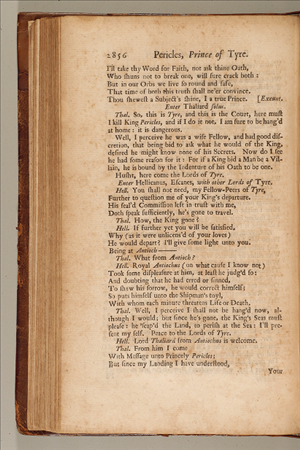 2856 Pericles, Prince of Tyre.
I'll take thy Word for Faith, not ask thine Oath,
Who shuns not to break one, will sure crack both:
But in our Orbs we live so round and safe,
That time of both this truth shall ne'er convince.
Thou shewest a Subject's shine, I a true Prince. [Exeunt.
Enter Thaliard solus.
Thal. So, this is Tyre, and this is the Court, here must
I kill King Pericles, and if I do it not, I am sure to be hang'd
at home: it is dangerous.
Well, I perceive he was a wise Fellow, and had good dis-
cretion, that being bid to ask what he would of the King,
desired he might know none of his Secrets. Now do I see
he had some reason for it: For if a King bid a Man be a Vil-
lain, he is bound by the Indenture of his Oath to be one.
Husht, here come the Lords of Tyre.
Enter Hellicanus, Escanes, with other Lords of Tyre.
Hell. You shall not need, my Fellow-Peers of Tyre,
Further to question me of your King's departure.
His seal'd Commission left in trust with me,
Doth speak sufficiently, he's gone to travel.
Thal. How, the King gone?
Hell. If further yet you will be satisfied,
Why (as it were unlicens'd of your loves)
He would depart? I'll give some light unto you.
Being at Antioch———
Thal. What from Antioch?
Hell. Royal Antiochus (on what cause I know not)
Took some displeasure at him, at least he judg'd so:
And doubting that he had erred or sinned,
To shew his sorrow, he would correct himself;
So puts himself unto the Shipman's toyl,
With whom each minute threatens Life or Death.
Thal. Well, I perceive I shall not be hang'd now, al-
though I would; but since he's gone, the King's Seas must
please: he 'scap'd the Land, to perish at the Sea: I'll pre-
sent my self. Peace to the Lords of Tyre.
Hell. Lord Thaliard from Antiochus is welcome.
Thal. From him I come
With Message unto Princely Pericles;
But since my Landing I have understood,
Your